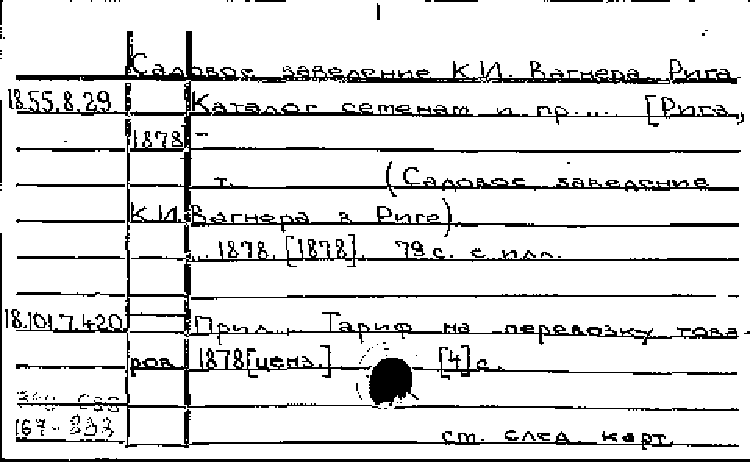 Садовое заведение К.И. Вагнера. Рига
18.55.8.29 Каталог семенам и пр.... [Рига,
1878] -
т. (Садовое заведение
К.И. Вагнера в Риге)
... 1878. [1878]. 79 с. с илл.
18.101.7.420 Прил.: Тариф на перевозку това-
ров 1878 [ценз.] [4] с.
167-833 см. след. карт.